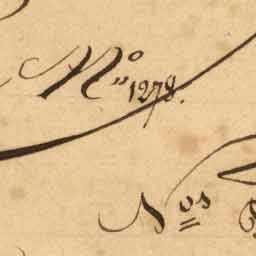 Nº 1278.
Nos